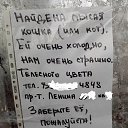 Найдена лысая
кошка (или кот).
Ей очень холодно,
нам очень страшно.
Телесного цвета
тел. 4848
пр-т. Ленина
Заберите её,
пожалуйста!